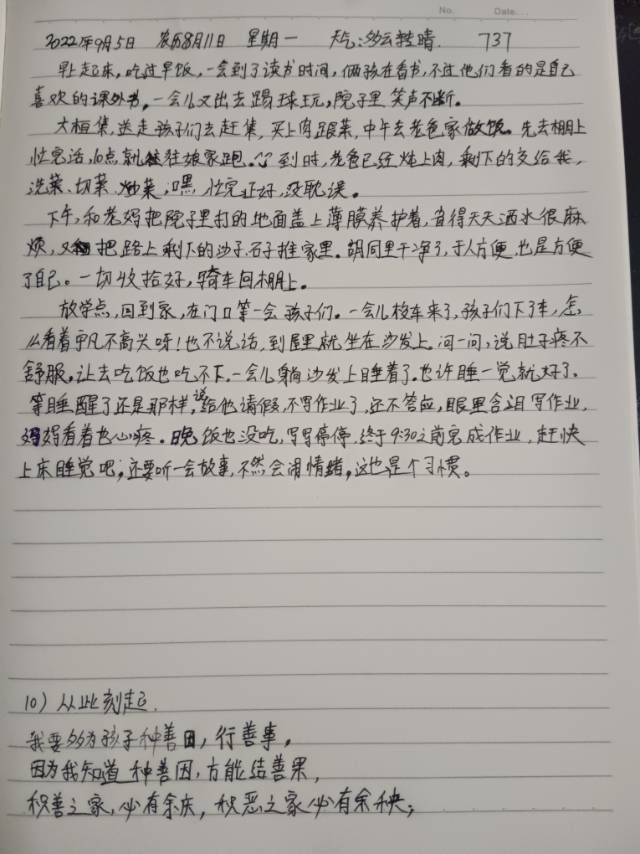 No.
Date.
2022年9月5日 农历8月11日 星期一 天气:多云转晴. 737
早上起来,吃过早饭,一会到了读书时间,俩孩在看书,不过他们看的是自己
喜欢的课外书,一会儿又出去踢球玩,院子里笑声不断。
大桓集,送走孩子们去赶集,买上肉跟菜,中午去老爸家做饭。先去棚上
忙完活,10点就往娘家跑。到时,老爸已经炖上肉,剩下的交给我,
洗菜、切菜、炒菜,嘿,忙完正好,没耽误。
下午,和老妈把院子里打的地面盖上薄膜养护着,省得天天洒水很麻
烦,又把路上剩下的沙子,石子推家里。胡同里干净了,于人方便,也是方便
了自己。一切收拾好,骑车回棚上。
放学点,回到家,在门口等一会孩子们。一会儿校车来了,孩子们下了车,怎
么看着宇凡不高兴呀!也不说话,到屋里就坐在沙发上。问一问,说肚子疼不
舒服。让去吃饭也吃不下。一会儿躺沙发上睡着了。也许睡一觉就好了。
等睡醒了还是那样,说给他请假,不写作业了,还不答应,眼里含泪写作业,
妈妈看着也心疼。晚饭也没吃,写写停停,终于9:30之前完成作业,赶快
上床睡觉吧,还要听一会故事,不然会闹情绪,这也是个习惯。
10) 从此刻起.
我要多为孩子种善因,行善事,
因为我知道种善因,方能结善果,
积善之家,必有余庆,积恶之家必有余殃;